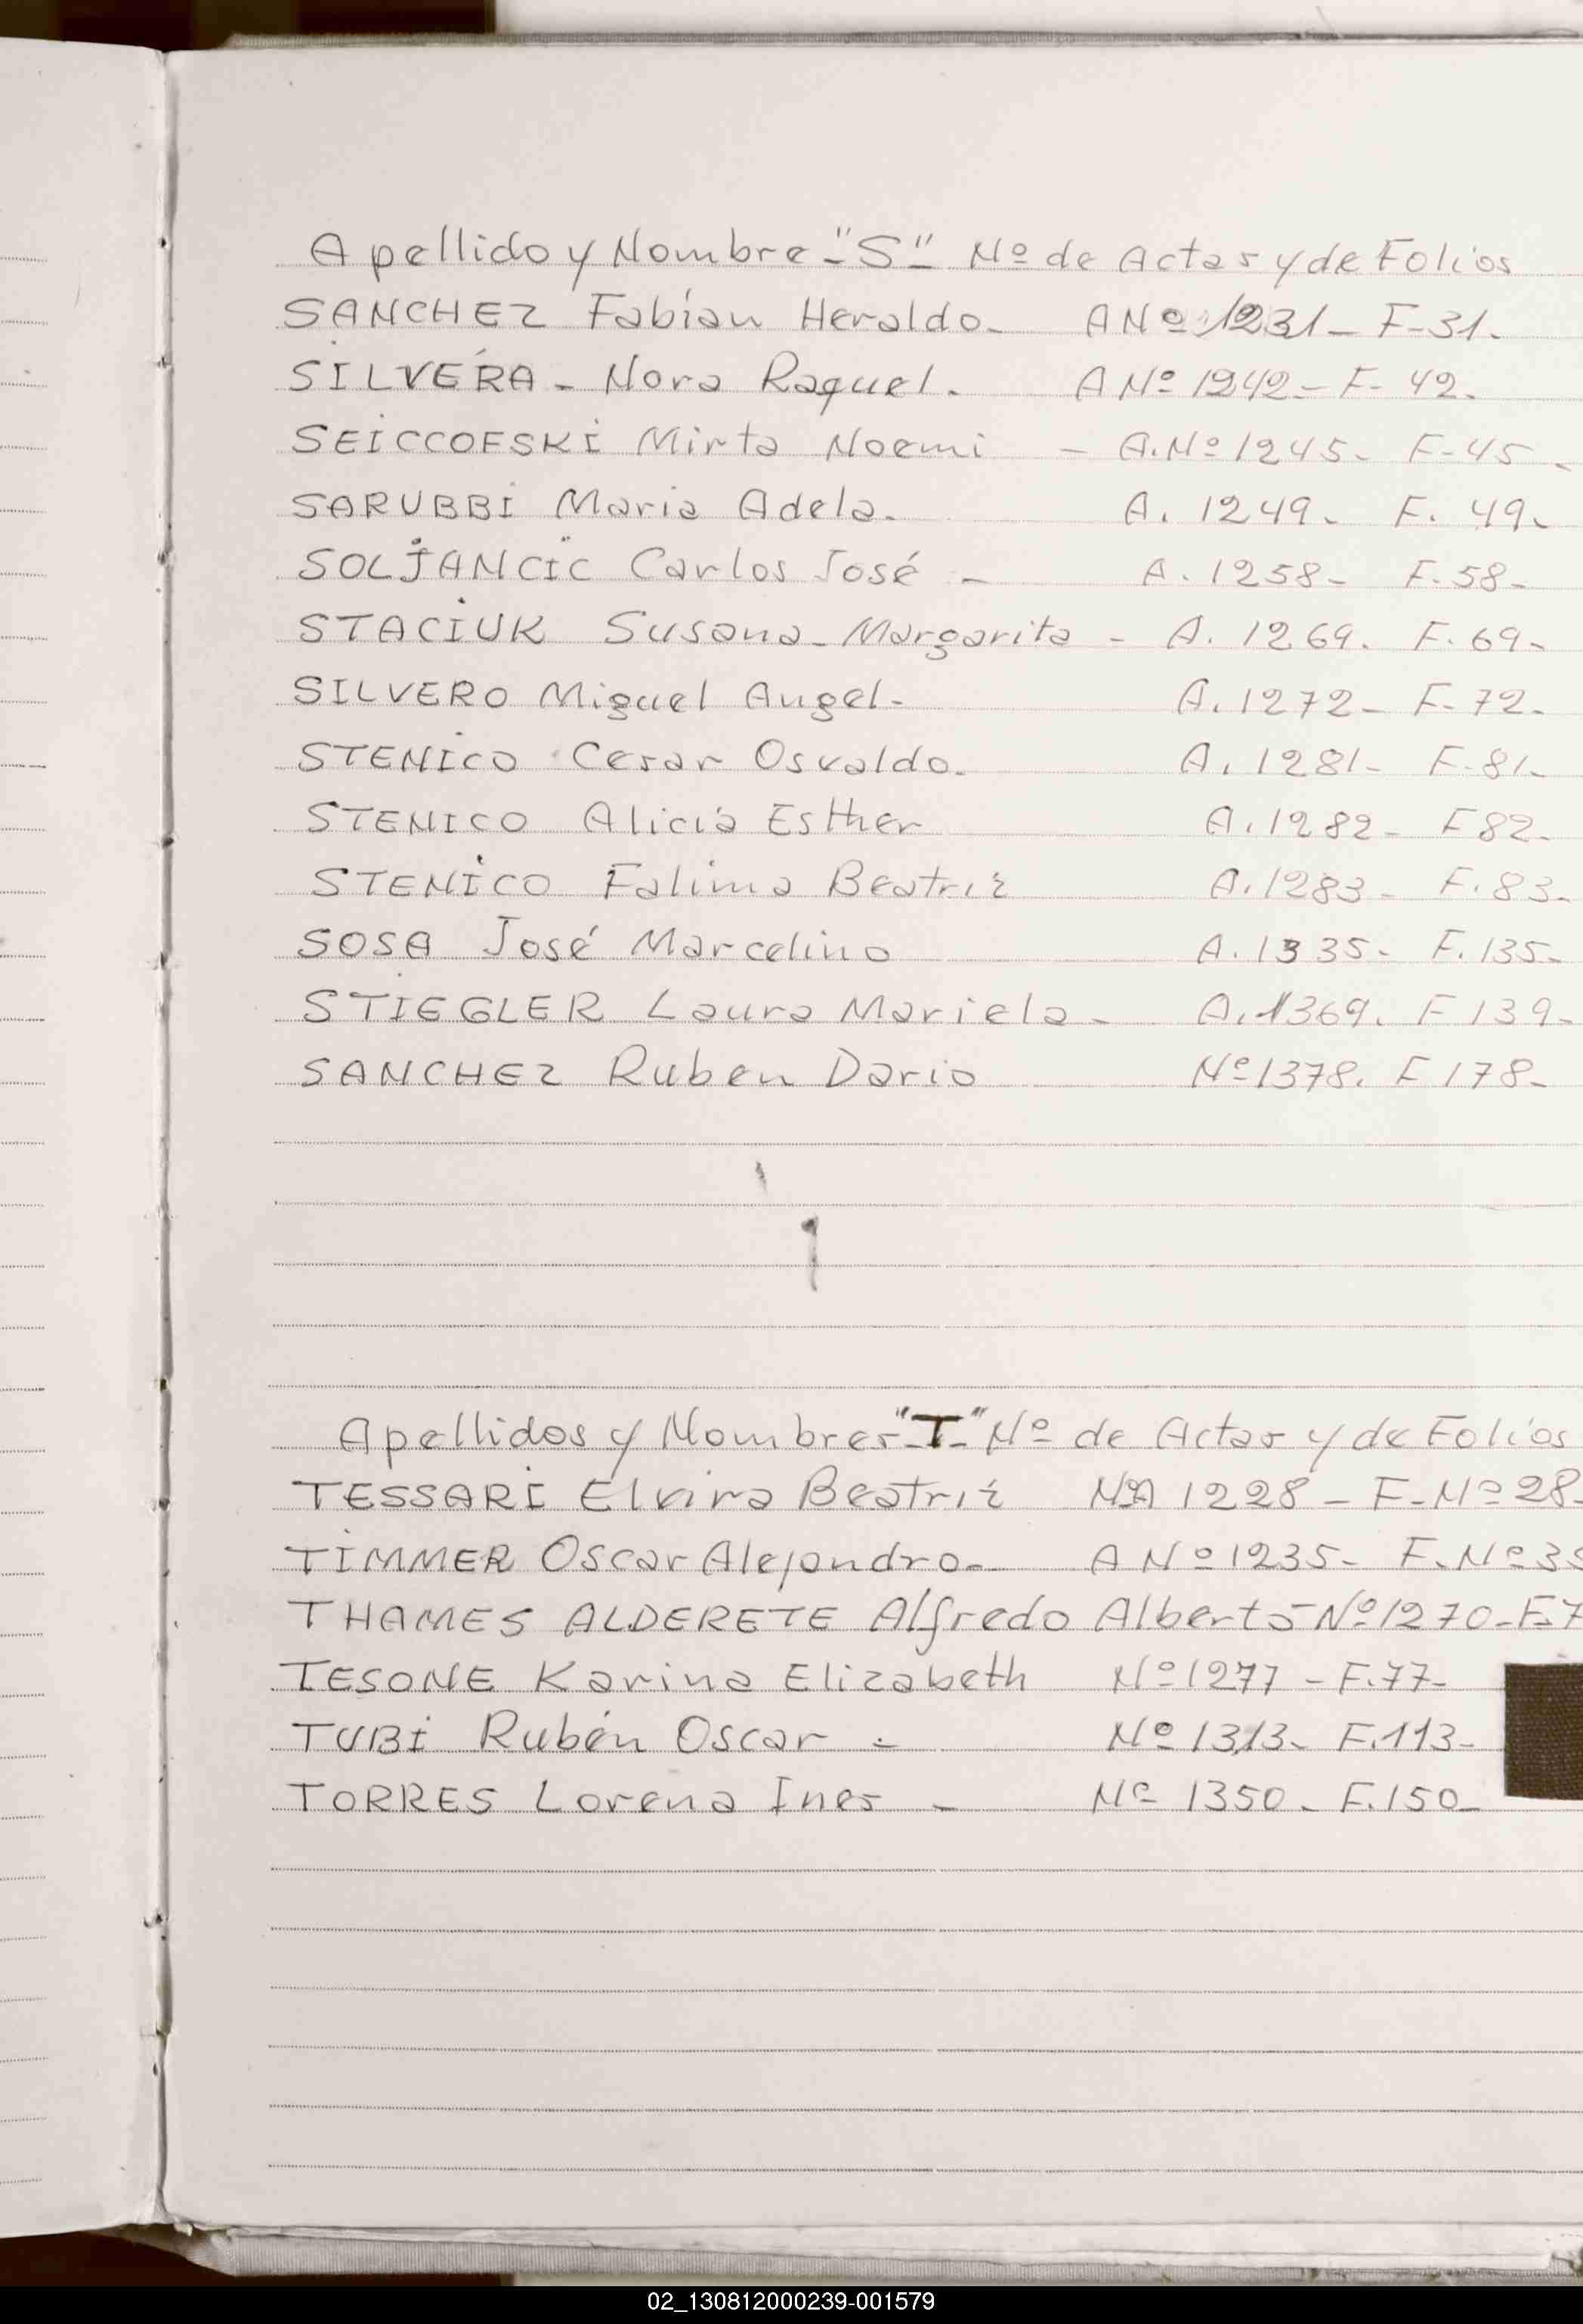 Apellido y Nombre - "S" - Nº de Actas y de Folios
SANCHEZ Fabían Heraldo - A Nº 1231 - F - 31 -
SILVERA - Nora Raquel. A Nº 1242 - F - 42.
SEICCOFSKI Mirta Noemi - A. Nº 1245 - F - 45 -
SARUBBI Maria Adela. A. 1249 - F. 49 -
SOLJANCIC Carlos José - A. 1258 - F. 58 -
STACIUK Susana - Margarita - A. 1269. F. 69 -
SILVERO Miguel Angel - A. 1272 - F - 72 -
STENICO Cesar Osvaldo. A. 1281 - F - 81 -
STENICO Alicia Esther A. 1282 - F 82 -
STENICO Falima Beatriz A. 1283 - F. 83 -
SOSA José Marcelino A. 1335 - F. 135 -
STIEGLER Laura Mariela - A. 1369. F 139 -
SANCHEZ Ruben Dario Nº 1378. F 178 -
Apellidos y Nombres "-T-" Nº de Actas y de Folios
TESSARI Elvira Beatriz NºA 1228 - F - Nº 28 -
TIMMER Oscar Alejandro - A Nº 1235 - F. Nº 35
THAMES ALDERETE Alfredo Alberto - Nº 1270 - F. 7
TESONE Karina Elizabeth Nº 1277 - F. 77 -
TUBI Rubén Oscar - Nº 1313 - F. 113 -
TORRES Lorena Ines - Nº 1350 - F. 150 -
02_130812000239-001579